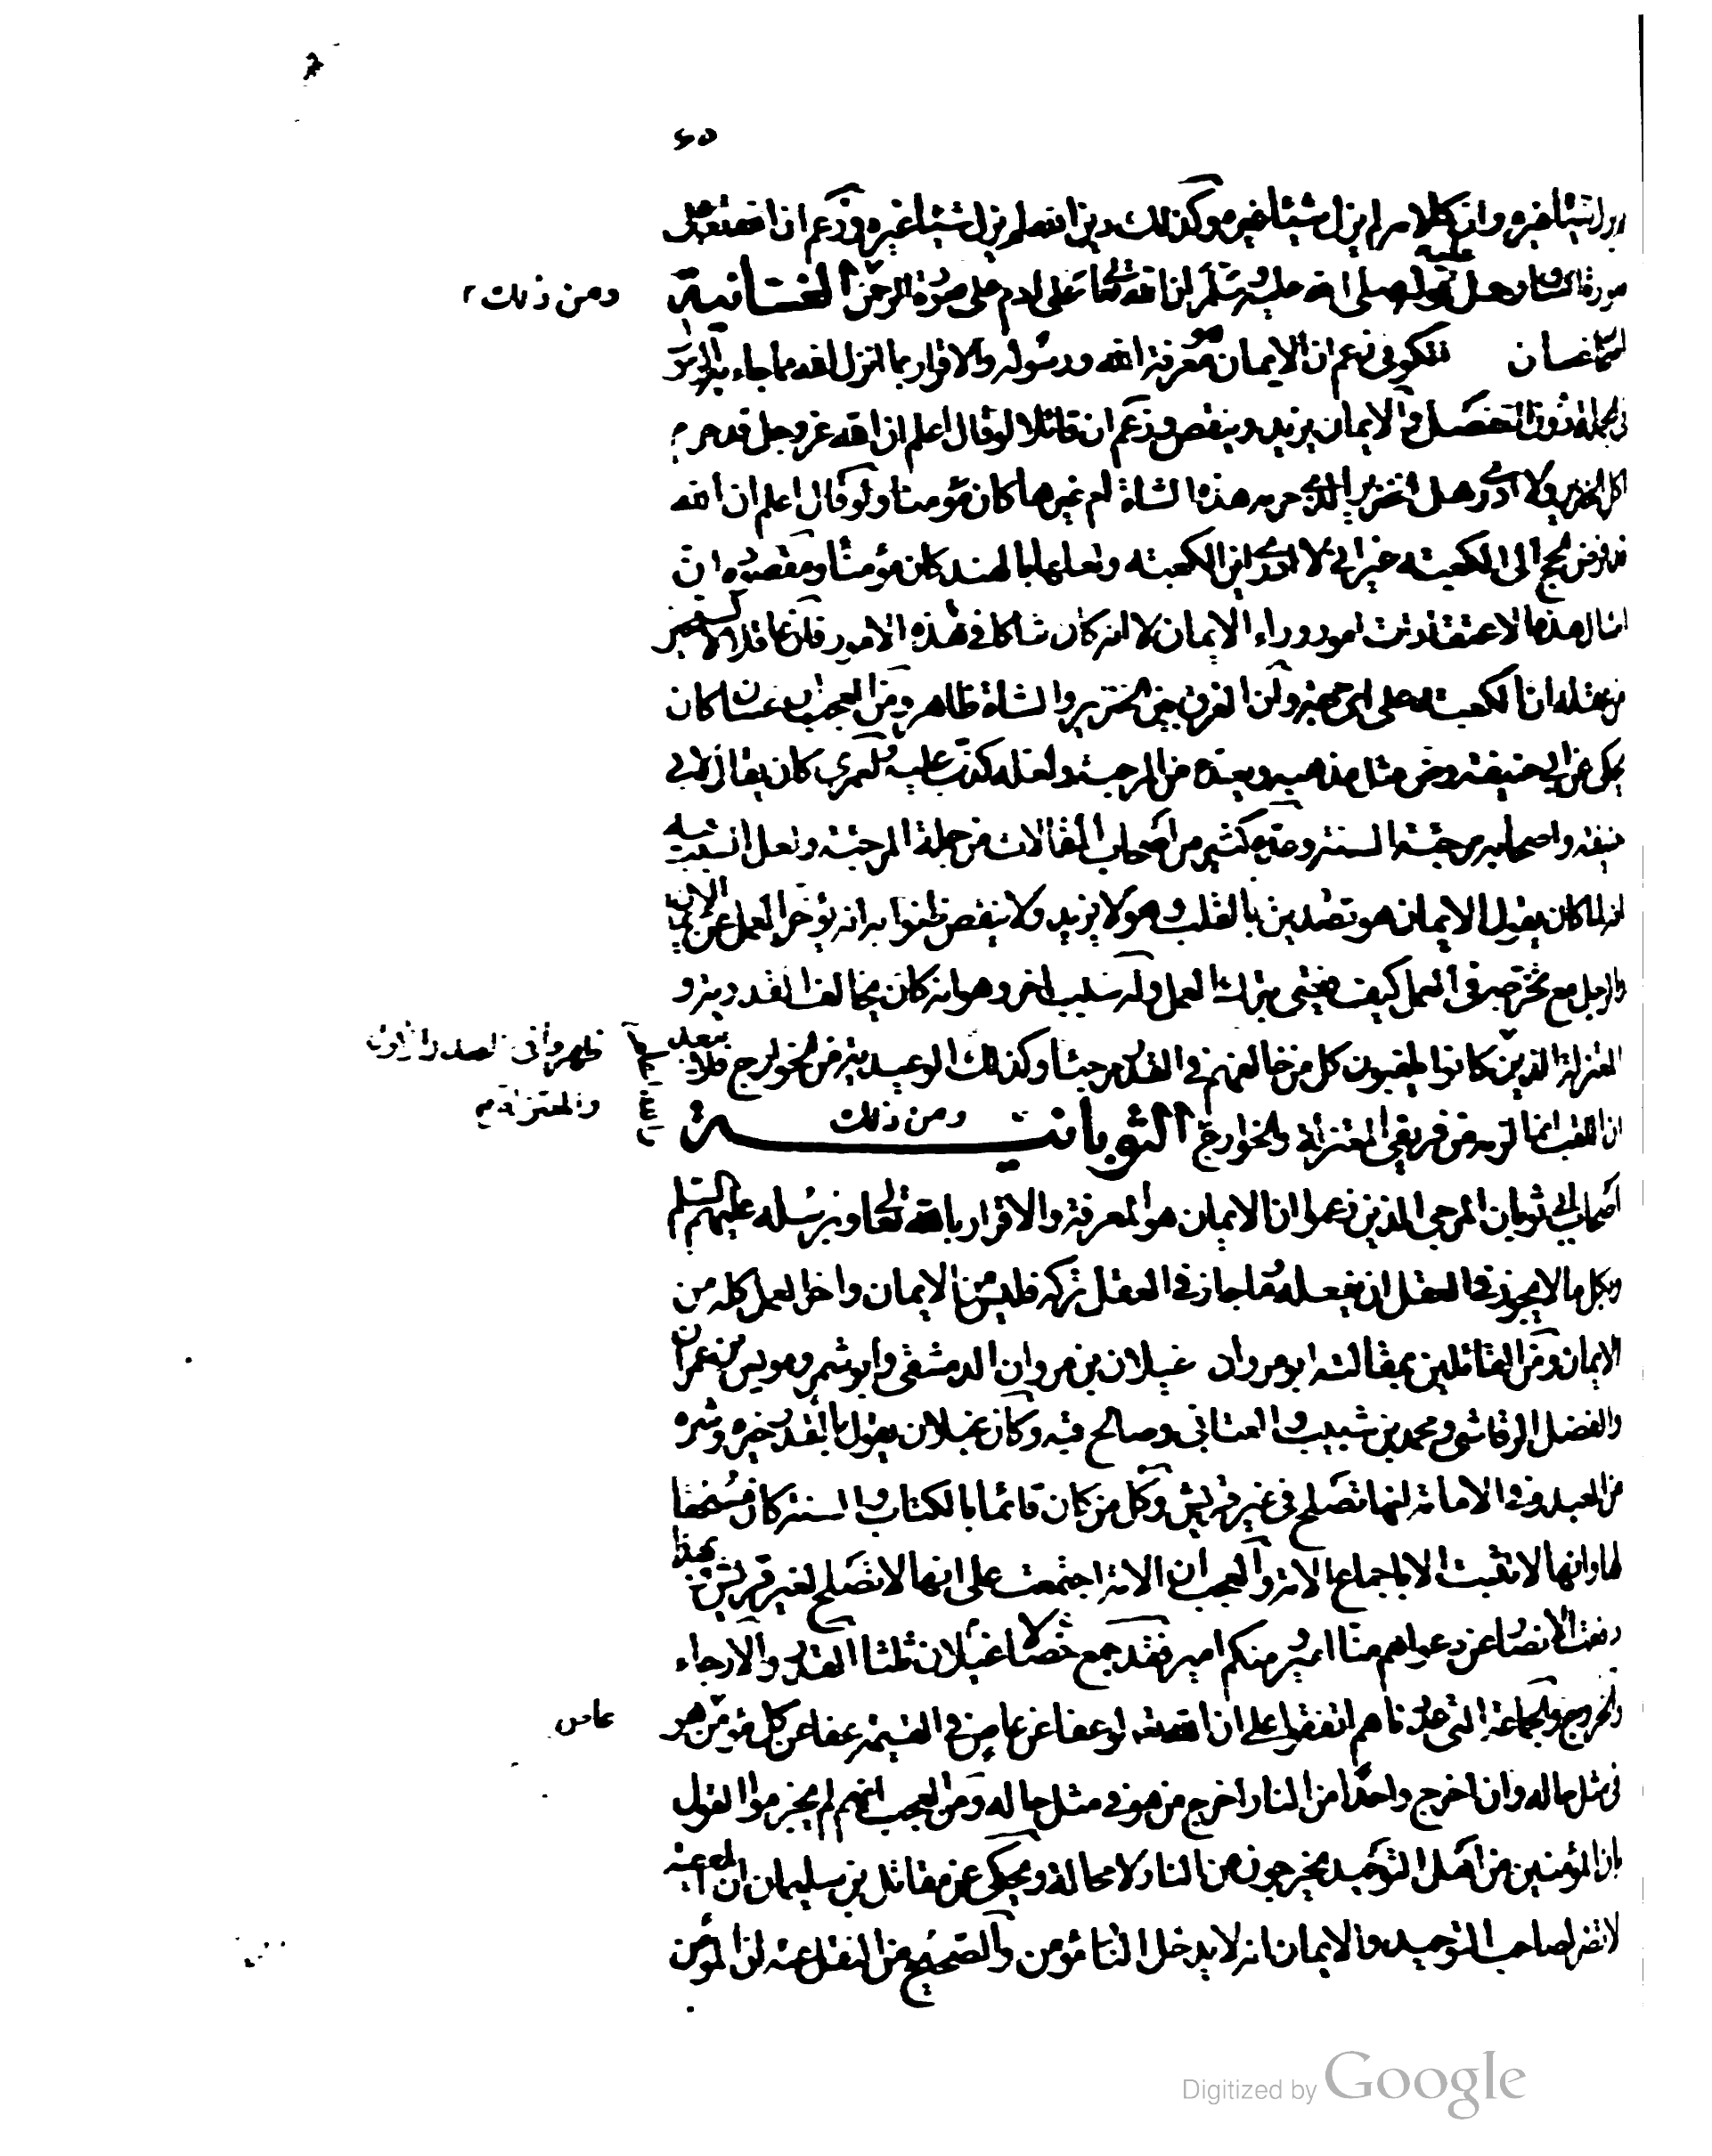 ٤٥
يزل شيئا غيره وان كلامه لم يزل شيئا غيره وكذلك دين الله لم يزل شيئا غيره وزعم ان الله تعالى
صورة انسان وحمل قوله صلى الله عليه وسلم ان الله تعالى خلق ادم على صورة الرحمن الغسانية
ومن ذلك
اصحاب غسان الكوفي زعم ان الايمان هو معرفة الله ورسوله والاقرار بما انزل الله مما جاء به الرسول
في الجملة دون التفصيل والايمان يزيد وينقص وزعم ان قائلا لو قال اعلم ان الله عز وجل قد حرم
اكل الخنزير ولا ادري هل الخنزير الذي حرمه هذه الشاة ام غيرها كان مؤمنا ولو قال اعلم ان الله
قد فرض الحج الى الكعبة غير اني لا ادري اين الكعبة ولعلها بالهند كان مؤمنا ومقصوده ان
امثال هذه الاعتقادات امور وراء الايمان لا انه كان شاكا في هذه الامور فان عاقلا لا يستجيز
من عقله ان الكعبة على اي جهة وان الفرق بين الخنزير والشاة ظاهر ومن العجب ان غسان كان
يحكي عن ابي حنيفة رض مثل مذهبه ويعده من المرجئة ولعله كذب عليه ولعمري كان يقال لابي
حنيفة واصحابه مرجئة السنة وعده كثير من اصحاب المقالات من جملة المرجئة ولعل السبب فيه
انه لما كان يقول الايمان هو تصديق بالقلب وهو لا يزيد ولا ينقص ظنوا به انه يؤخر العمل عن الايمان
والرجل مع تحرجه في العمل كيف يفتي بترك العمل وله سبب اخر وهو انه كان يخالف القدرية و
المعتزلة الذين كانوا يلقبون كل من خالفهم في القدر مرجئا وكذلك الوعيدية من الخوارج فلا يبعد
ظهروا في الصدر الاول
والمعتزلة
ان اللقب انما لزمه من فريقي المعتزلة والخوارج ومن ذلك الثوبانية
اصحاب ابي ثوبان المرجي الذين زعموا ان الايمان هو المعرفة والاقرار بالله تعالى وبرسله عليهم السلم
وبكل ما لا يجوز في العقل ان يفعله وما جاز في العقل تركه فليس من الايمان واخر العمل كله من
الايمان ومن القائلين بمقالته ابو مروان غيلان بن مروان الدمشقي وابو شمر ومويس بن عمران
والفضل الرقاشي ومحمد بن شبيب والعتابي وصالح قبه وكان غيلان يقول بالقدر خيره وشره
من العبد وفي الامامة انها تصلح في غير قريش وكل من كان قائما بالكتاب والسنة كان مستحقا
لها وانها لا تثبت الا باجماع الامة والعجب ان الامة اجتمعت على انها لا تصلح لغير قريش وبهذا
دفعت الانصار عن دعواهم منا امير ومنكم امير فقد جمع غيلان خصالا ثلثا القدر والارجاء
والخروج والجماعة التي عددناهم اتفقوا على ان الله تعه لو عفا عن عاص في القيمة عفا عن كل مؤمن هو
عاص
في مثل حاله وان اخرج واحدا من النار اخرج من هو في مثل حاله ومن العجب انهم لم يجزموا القول
بان المؤمنين من اهل التوحيد يخرجون من النار لا محالة ويحكى عن مقاتل بن سليمان ان المعصية
لا تضر صاحب التوحيد والايمان وانه لا يدخل النار مؤمن والصحيح من النقل عنه ان المؤمن
Digitized by Google